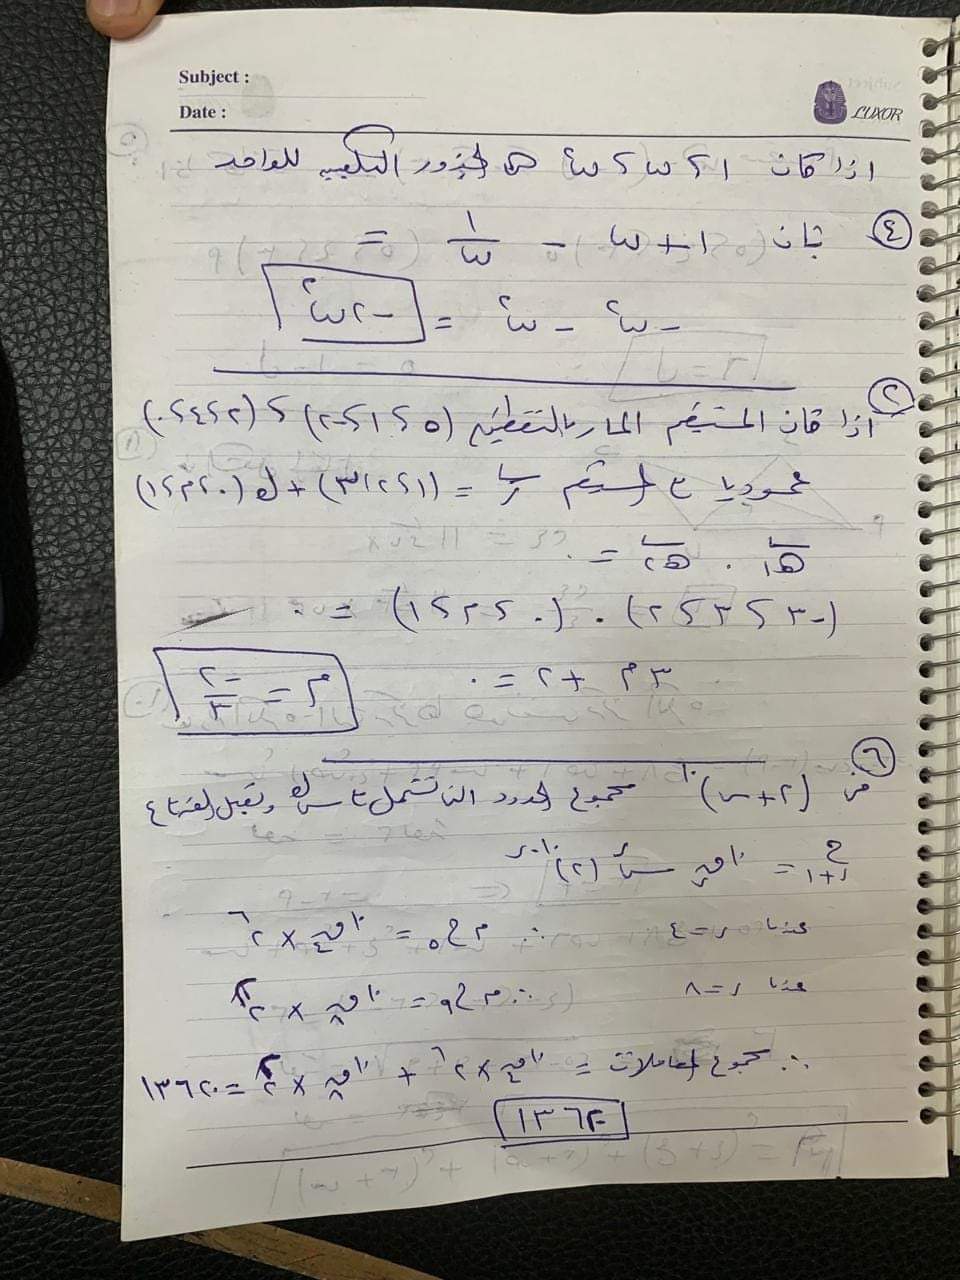 Subject :
Date :
LUXOR
اذا كانت ١ ، ω ، ω٢ هى الجذور التكعيبية للواحد
٤ فإن ١ + ω - ١/ω =
- ω٢ - ω٢ = -٢ω٢
٢
اذا كان المستقيم المار بالنقطتين (٥ ، ١ ، -٢) ، (٢ ، ٤ ، ٠)
عموديا ع المستقيم ر = (١ ، ٢ ، ٣) + ك (٠ ، م ، ١)
هـ١ . هـ٢ = ٠
(-٣ ، ٣ ، ٢) . (٠ ، م ، ١) = ٠
٣م + ٢ = ٠ م = -٢/٣
٦
(٢ + س)١٠ مجموع الحدود التى تشتمل على س وتقبل القسمة ع ٤
ح ر+١ = ١٠ق ر س ر (٢)١٠-ر
عندما ر = ٤ ∴ م ح٥ = ١٠ق٤ × ٢٦
عندما ر = ٨ ∴ م ح٩ = ١٠ق٨ × ٢٢
∴ مجموع المعاملات = ١٠ق٤ × ٢٦ + ١٠ق٨ × ٢٢ = ١٣٦٢٠